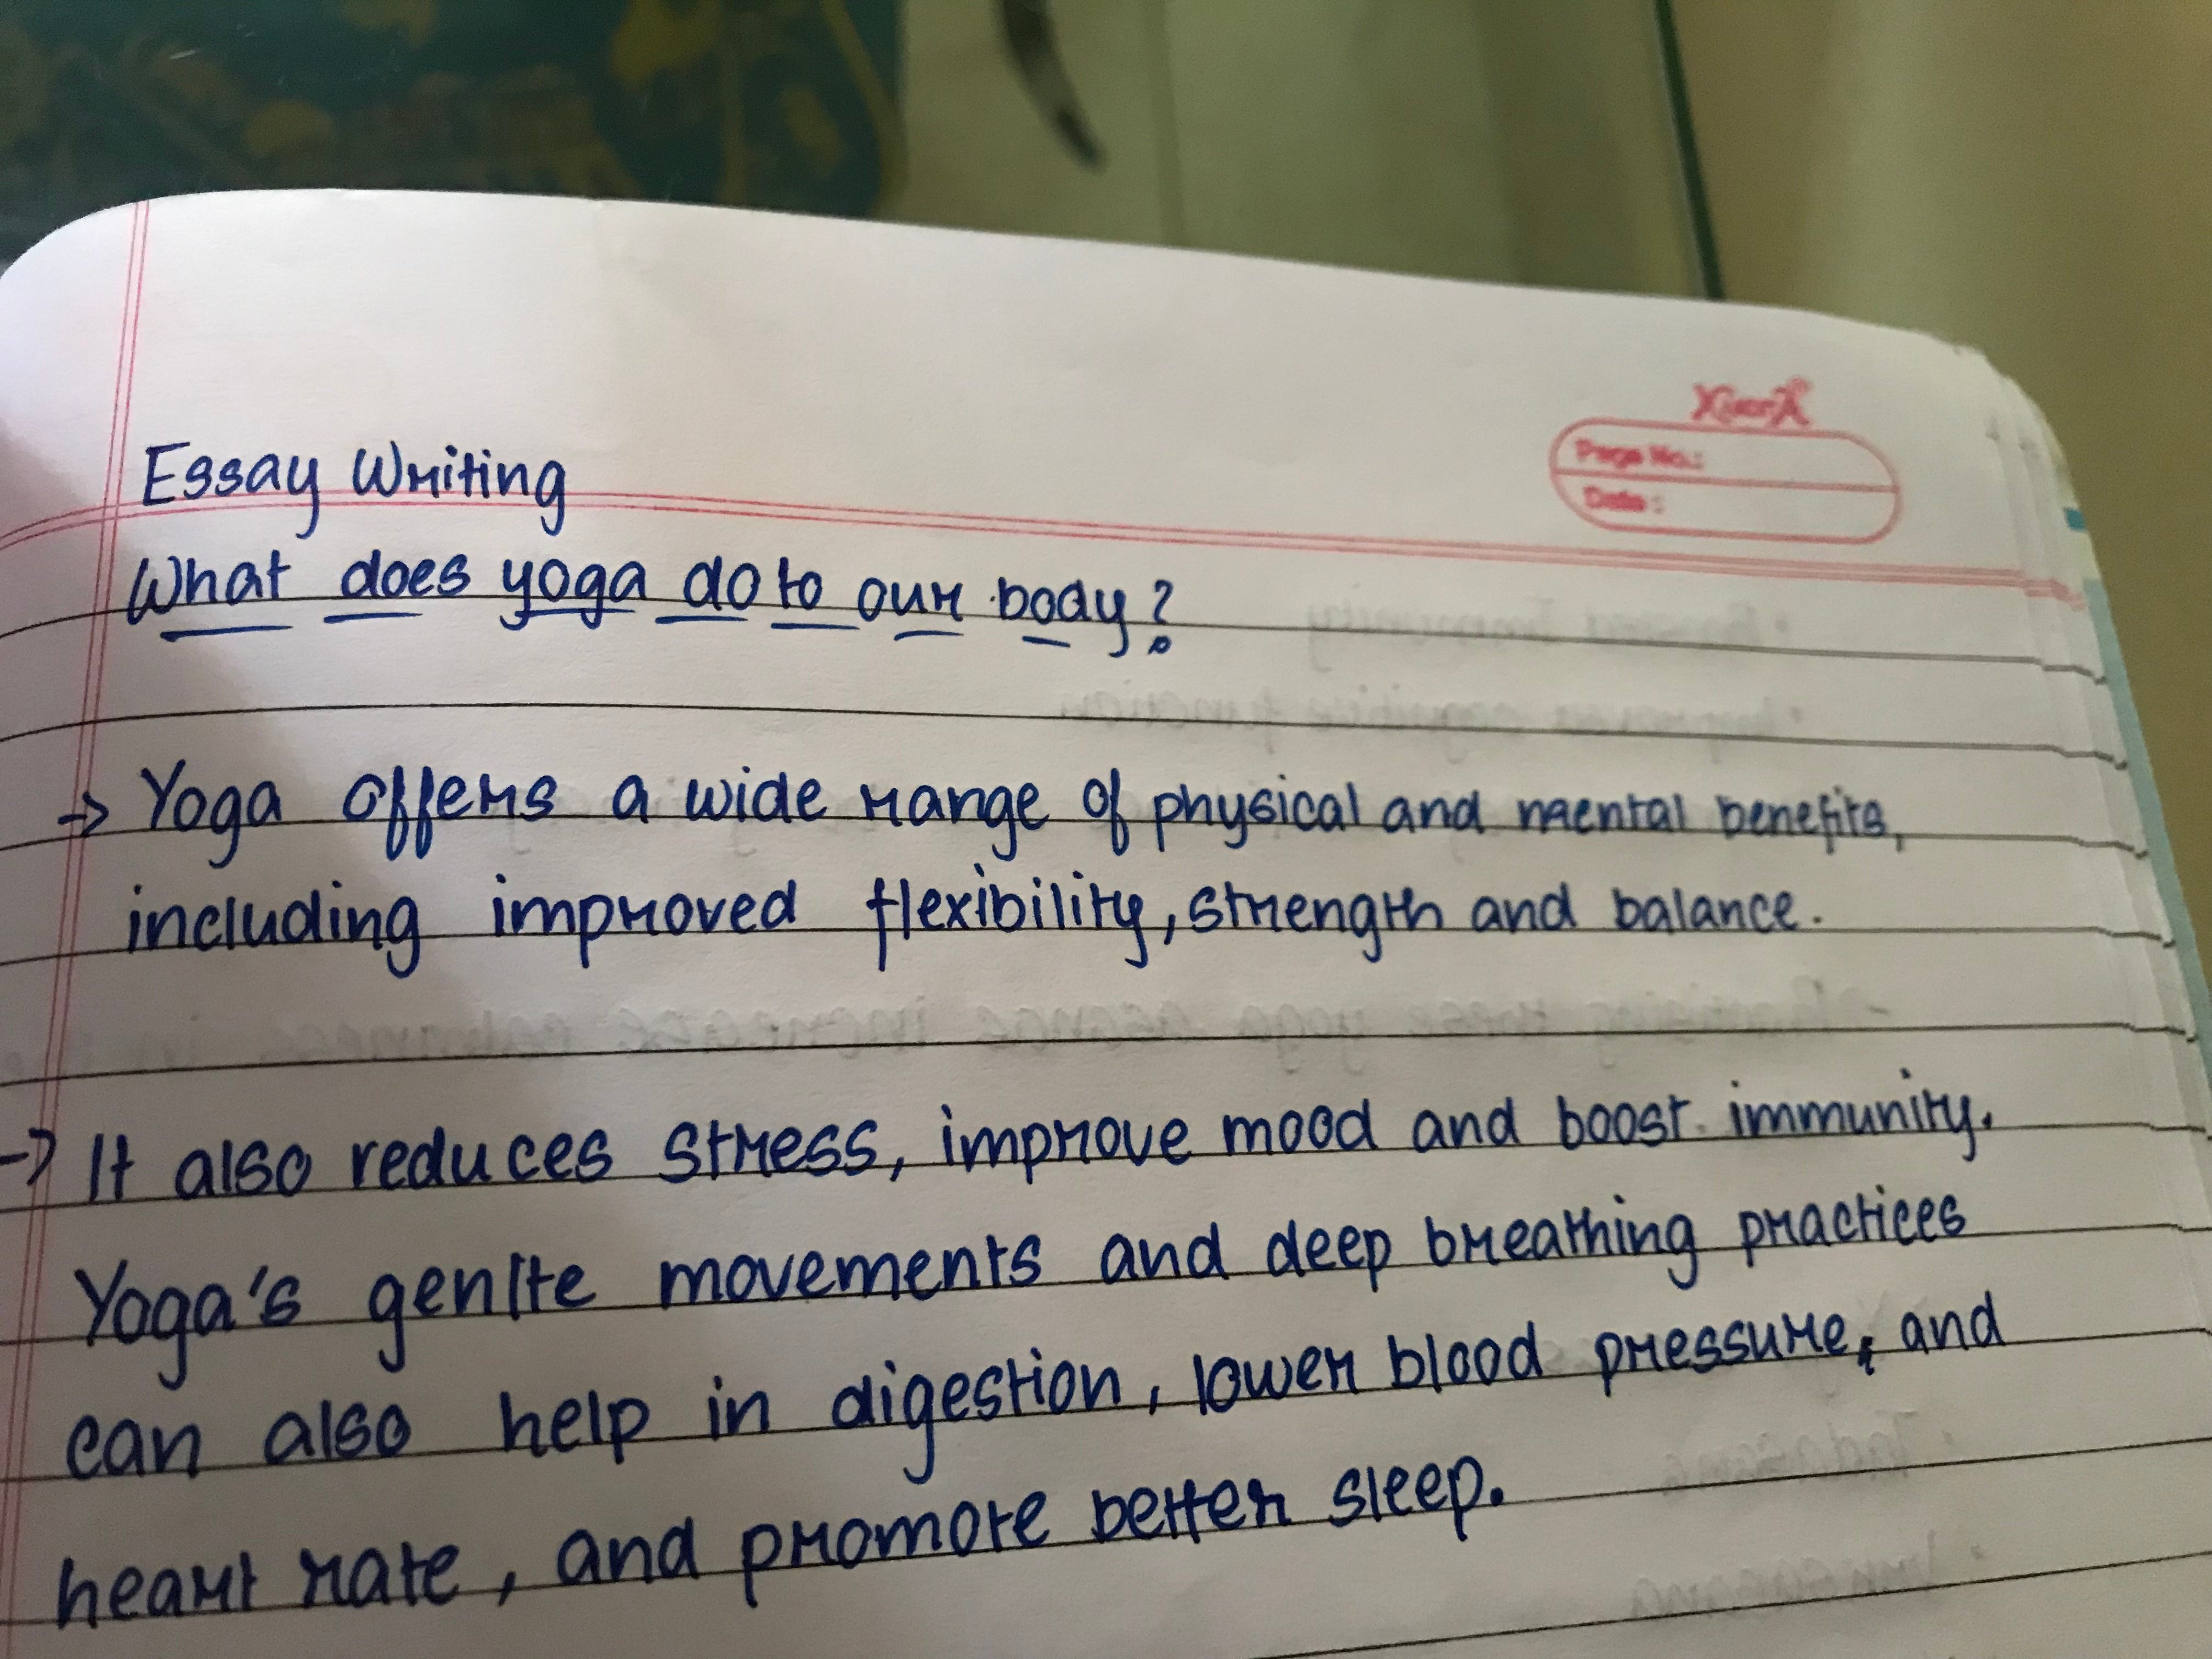 XternX
Page No.:
Date :
Essay Writing
What does yoga do to our body?
→ Yoga offers a wide range of physical and mental benefits,
including improved flexibility, strength and balance.
→ It also reduces stress, improve mood and boost immunity.
Yoga's genlte movements and deep breathing practices
can also help in digestion, lower blood pressure, and
heart rate, and promote better sleep.